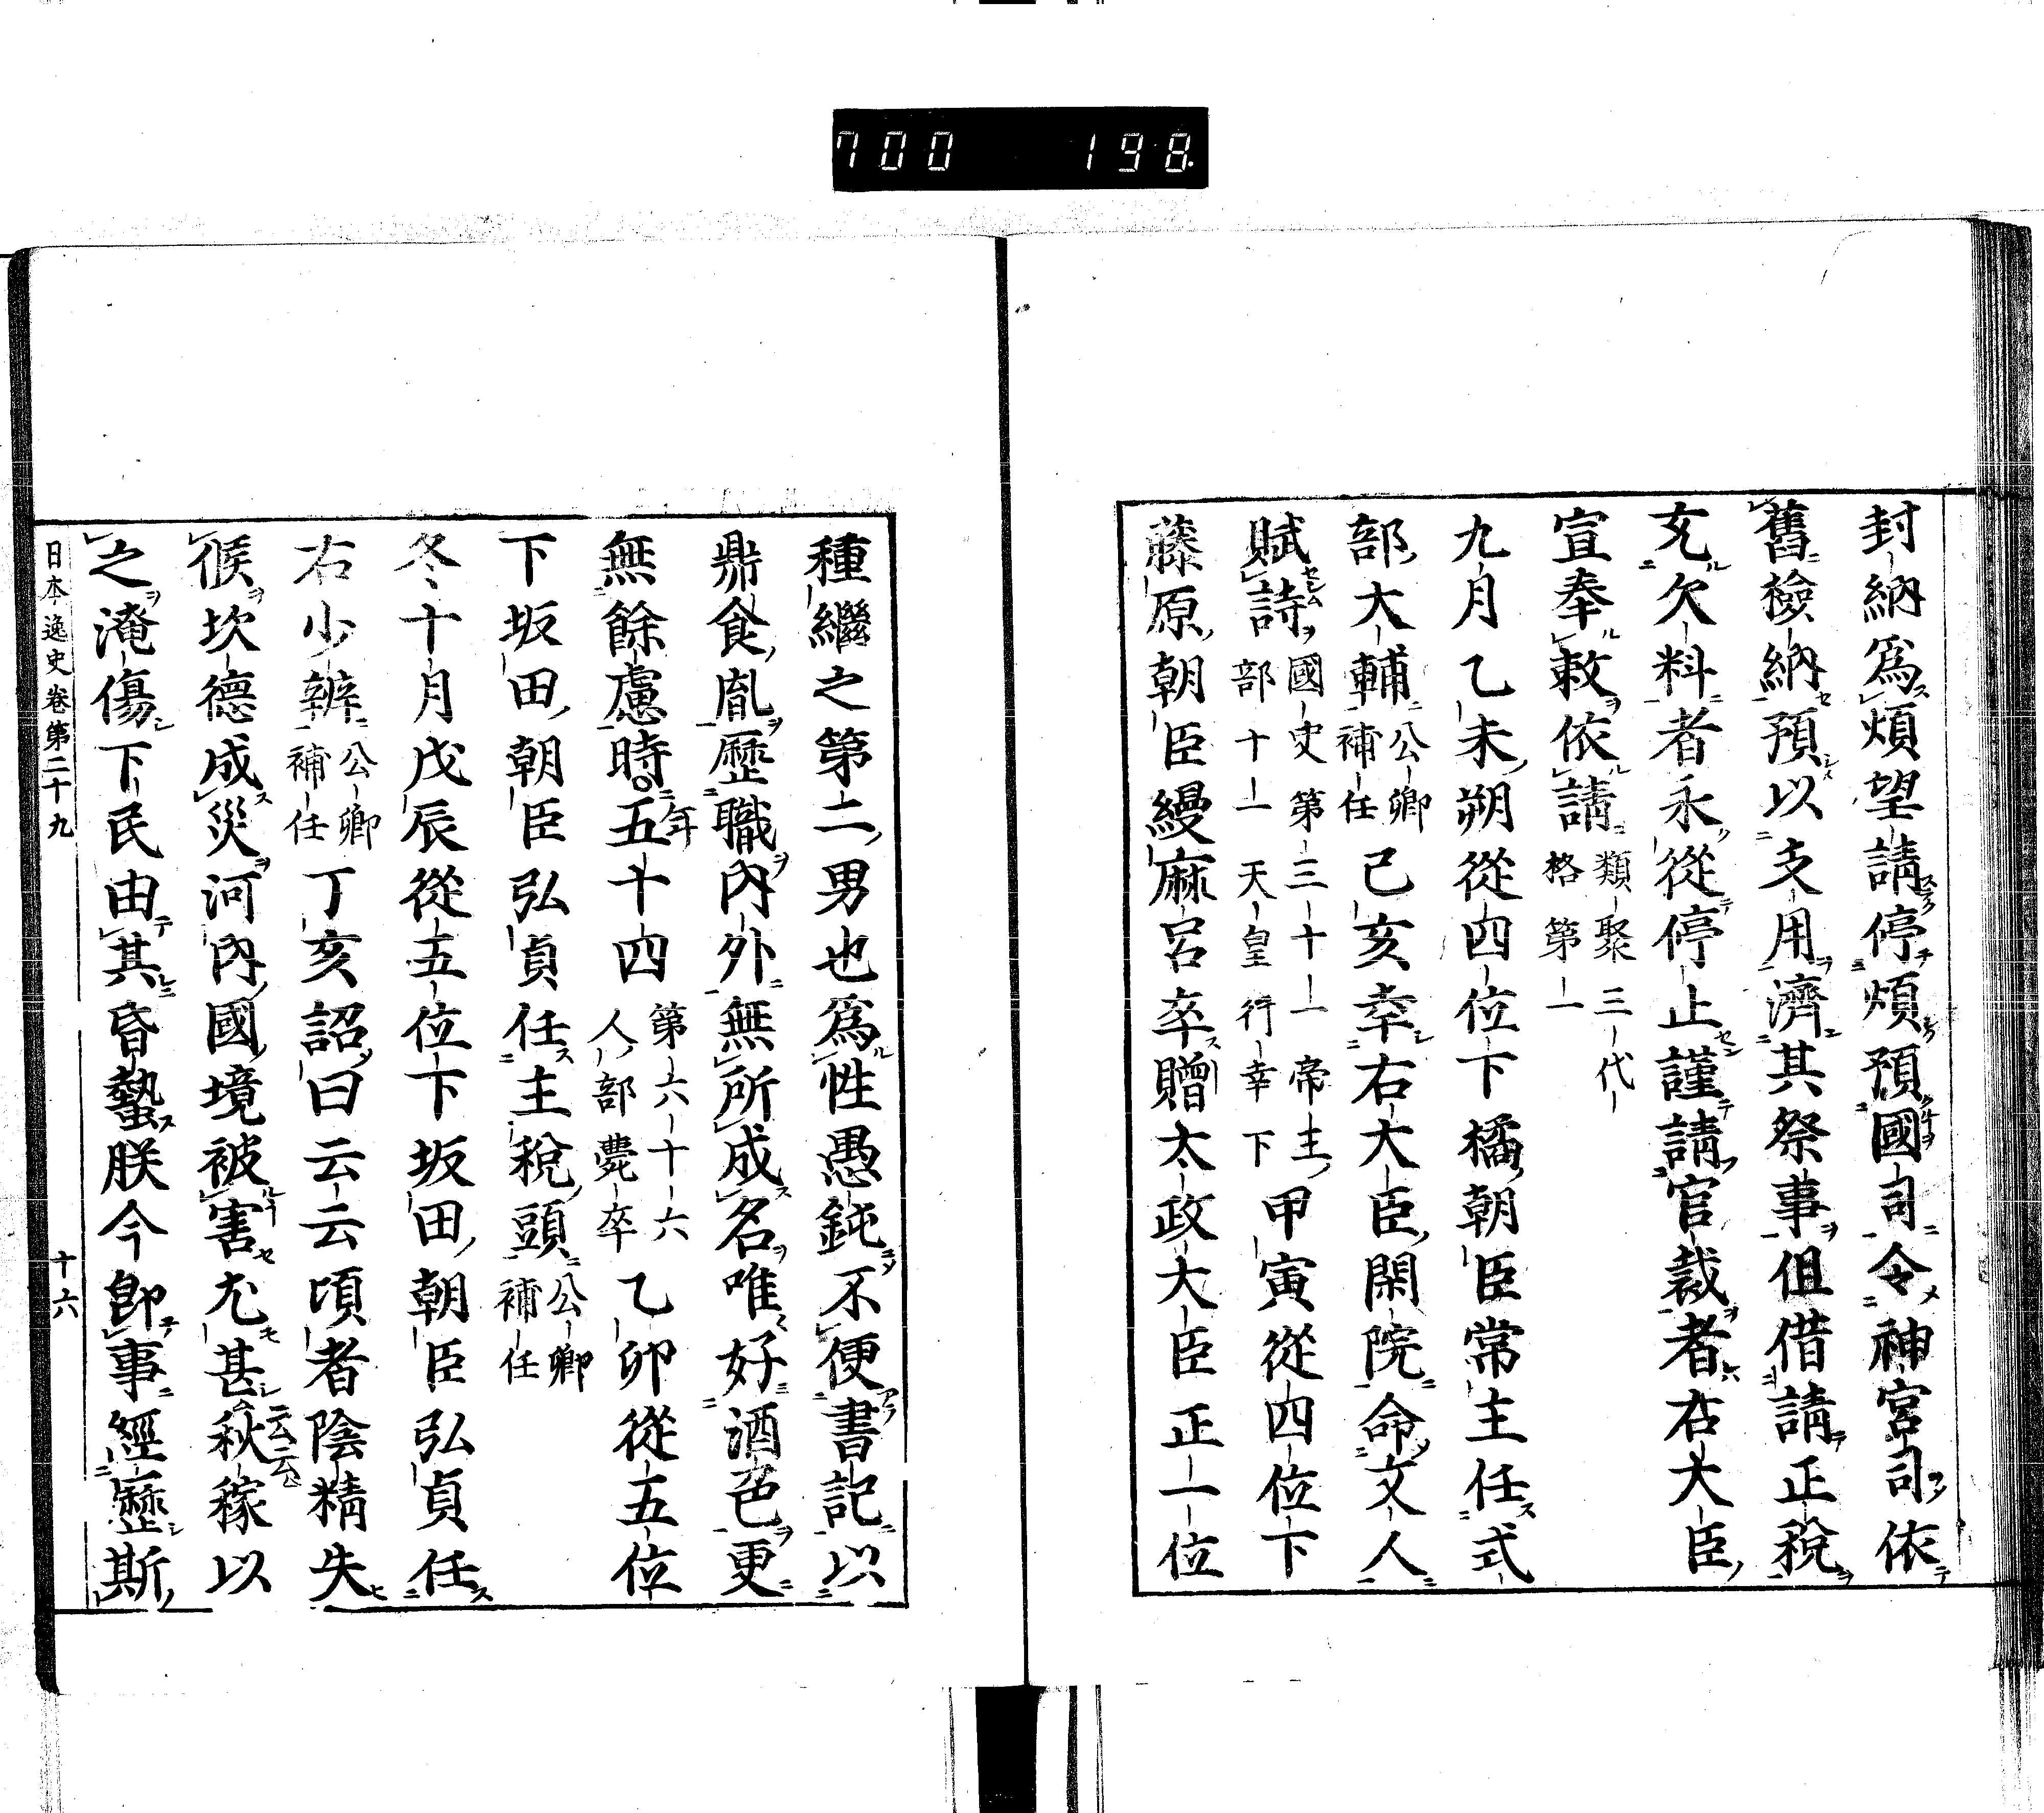 700 198
封納爲煩望請停煩預國司令神宮司依
舊檢納預以支用濟其祭事但借請正税
充欠料者永從停止謹請官裁者右大臣
宣奉敕依請 類聚三代格第一
九月乙未朔從四位下橘朝臣常主任式
部大輔 公卿補任 己亥幸右大臣閑院命文人
賦詩 國史第三十一帝王部十一天皇行幸下 甲寅從四位下
藤原朝臣縵麻呂卒贈太政大臣正一位
種繼之第二男也爲性愚鈍不便書記以
鼎食胤歷職內外無所成名唯好酒色更
無餘慮時年五十四 第六十六人部薨卒 乙卯從五位
下坂田朝臣弘貞任主税頭 公卿補任
冬十月戊辰從五位下坂田朝臣弘貞任
右少辨 公卿補任 丁亥詔曰云云頃者陰精失
候坎德成災河內國境被害尤甚云云秋稼以
之淹傷下民由其昏墊朕今即事經歷斯
日本逸史卷第二十九 十六